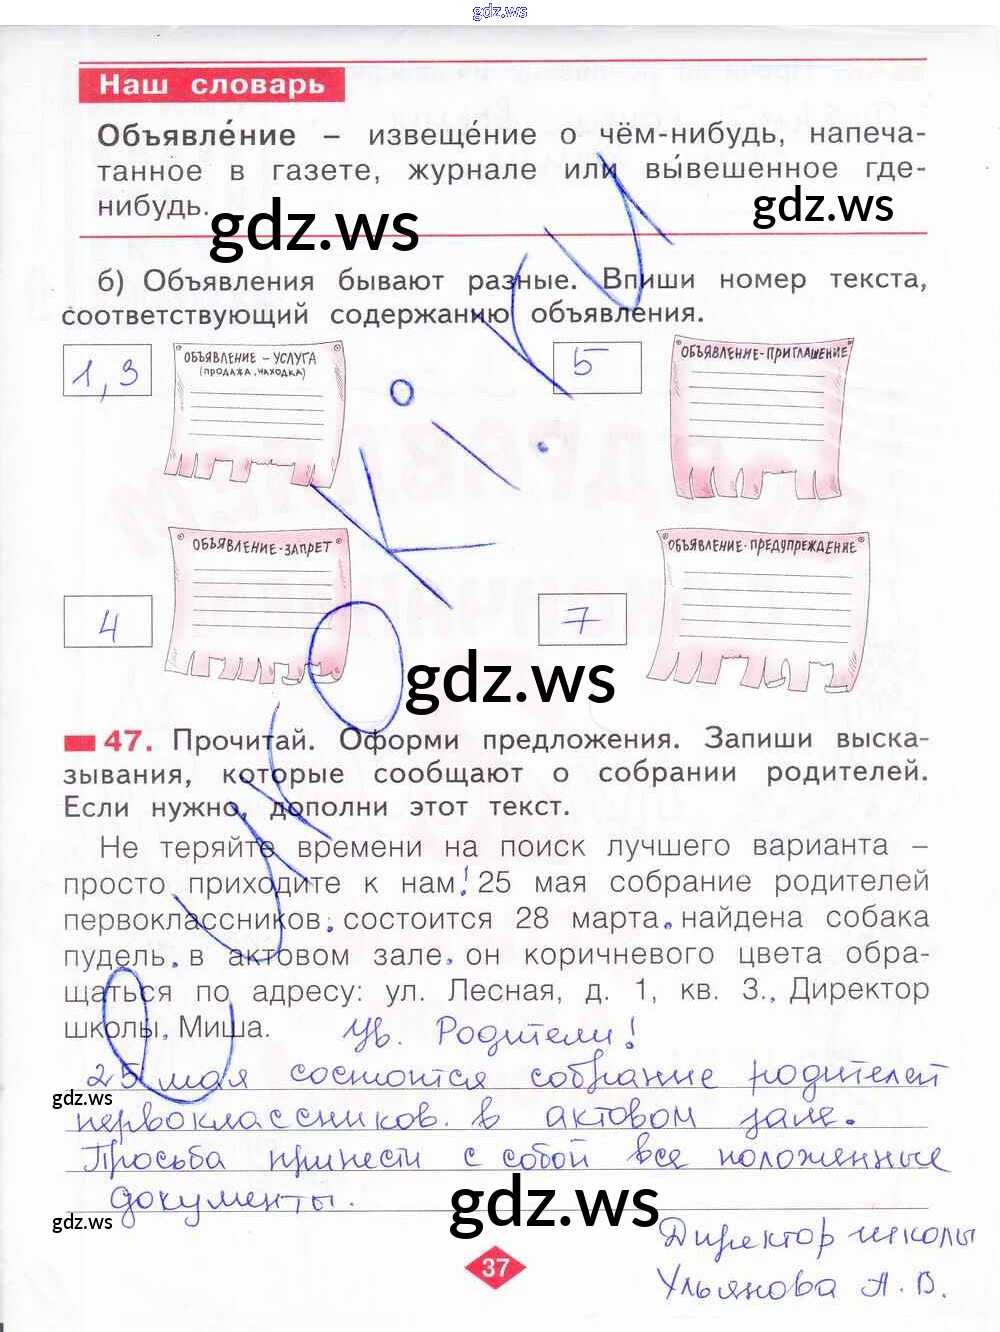 gdz.ws
Наш словарь
Объявле́ние – извеще́ние о чём-нибудь, напеча-
танное в газете, журнале или вы́вешенное где-
нибудь.
gdz.ws
gdz.ws
б) Объявления бывают разные. Впиши номер текста,
соответствующий содержанию объявления.
1, 3
ОБЪЯВЛЕНИЕ - УСЛУГА
(ПРОДАЖА, НАХОДКА)
5
ОБЪЯВЛЕНИЕ-ПРИГЛАШЕНИЕ
4
ОБЪЯВЛЕНИЕ-ЗАПРЕТ
7
ОБЪЯВЛЕНИЕ-ПРЕДУПРЕЖДЕНИЕ
gdz.ws
47. Прочитай. Оформи предложения. Запиши выска-
зывания, которые сообщают о собрании родителей.
Если нужно, дополни этот текст.
Не теряйте времени на поиск лучшего варианта –
просто приходите к нам! 25 мая собрание родителей
первоклассников. состоится 28 марта. найдена собака
пудель. в актовом зале. он коричневого цвета обра-
щаться по адресу: ул. Лесная, д. 1, кв. 3.. Директор
школы. Миша.
Ув. Родители!
25 мая состоится собрание родителей
gdz.ws
первоклассников. в актовом зале.
Просьба принести с собой все положенные
документы.
gdz.ws
gdz.ws
Директор школы
Ульянова А. В.
37